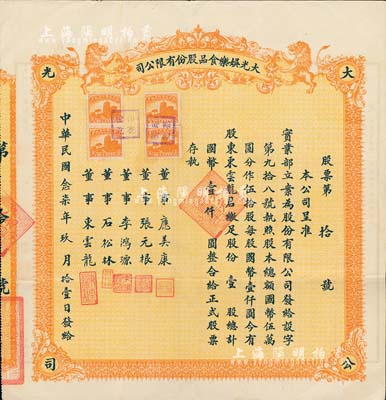 大光穌樂食品股份有限公司
大光
公司
股票第拾號
本公司呈准
實業部立案為股份有限公司發給設字
第九拾八號執照股本總額國幣伍萬
圓分作伍拾股每股國幣壹仟圓今有
股東東雲龍君繳足股份壹股總計
國幣壹仟圓整合給正式股票
存執
董事 應美康
董事 張元根
董事 李鴻源
董事 石松林
董事 東雲龍
中華民國念柒年玖月拾壹日發給
上海陽明拍卖